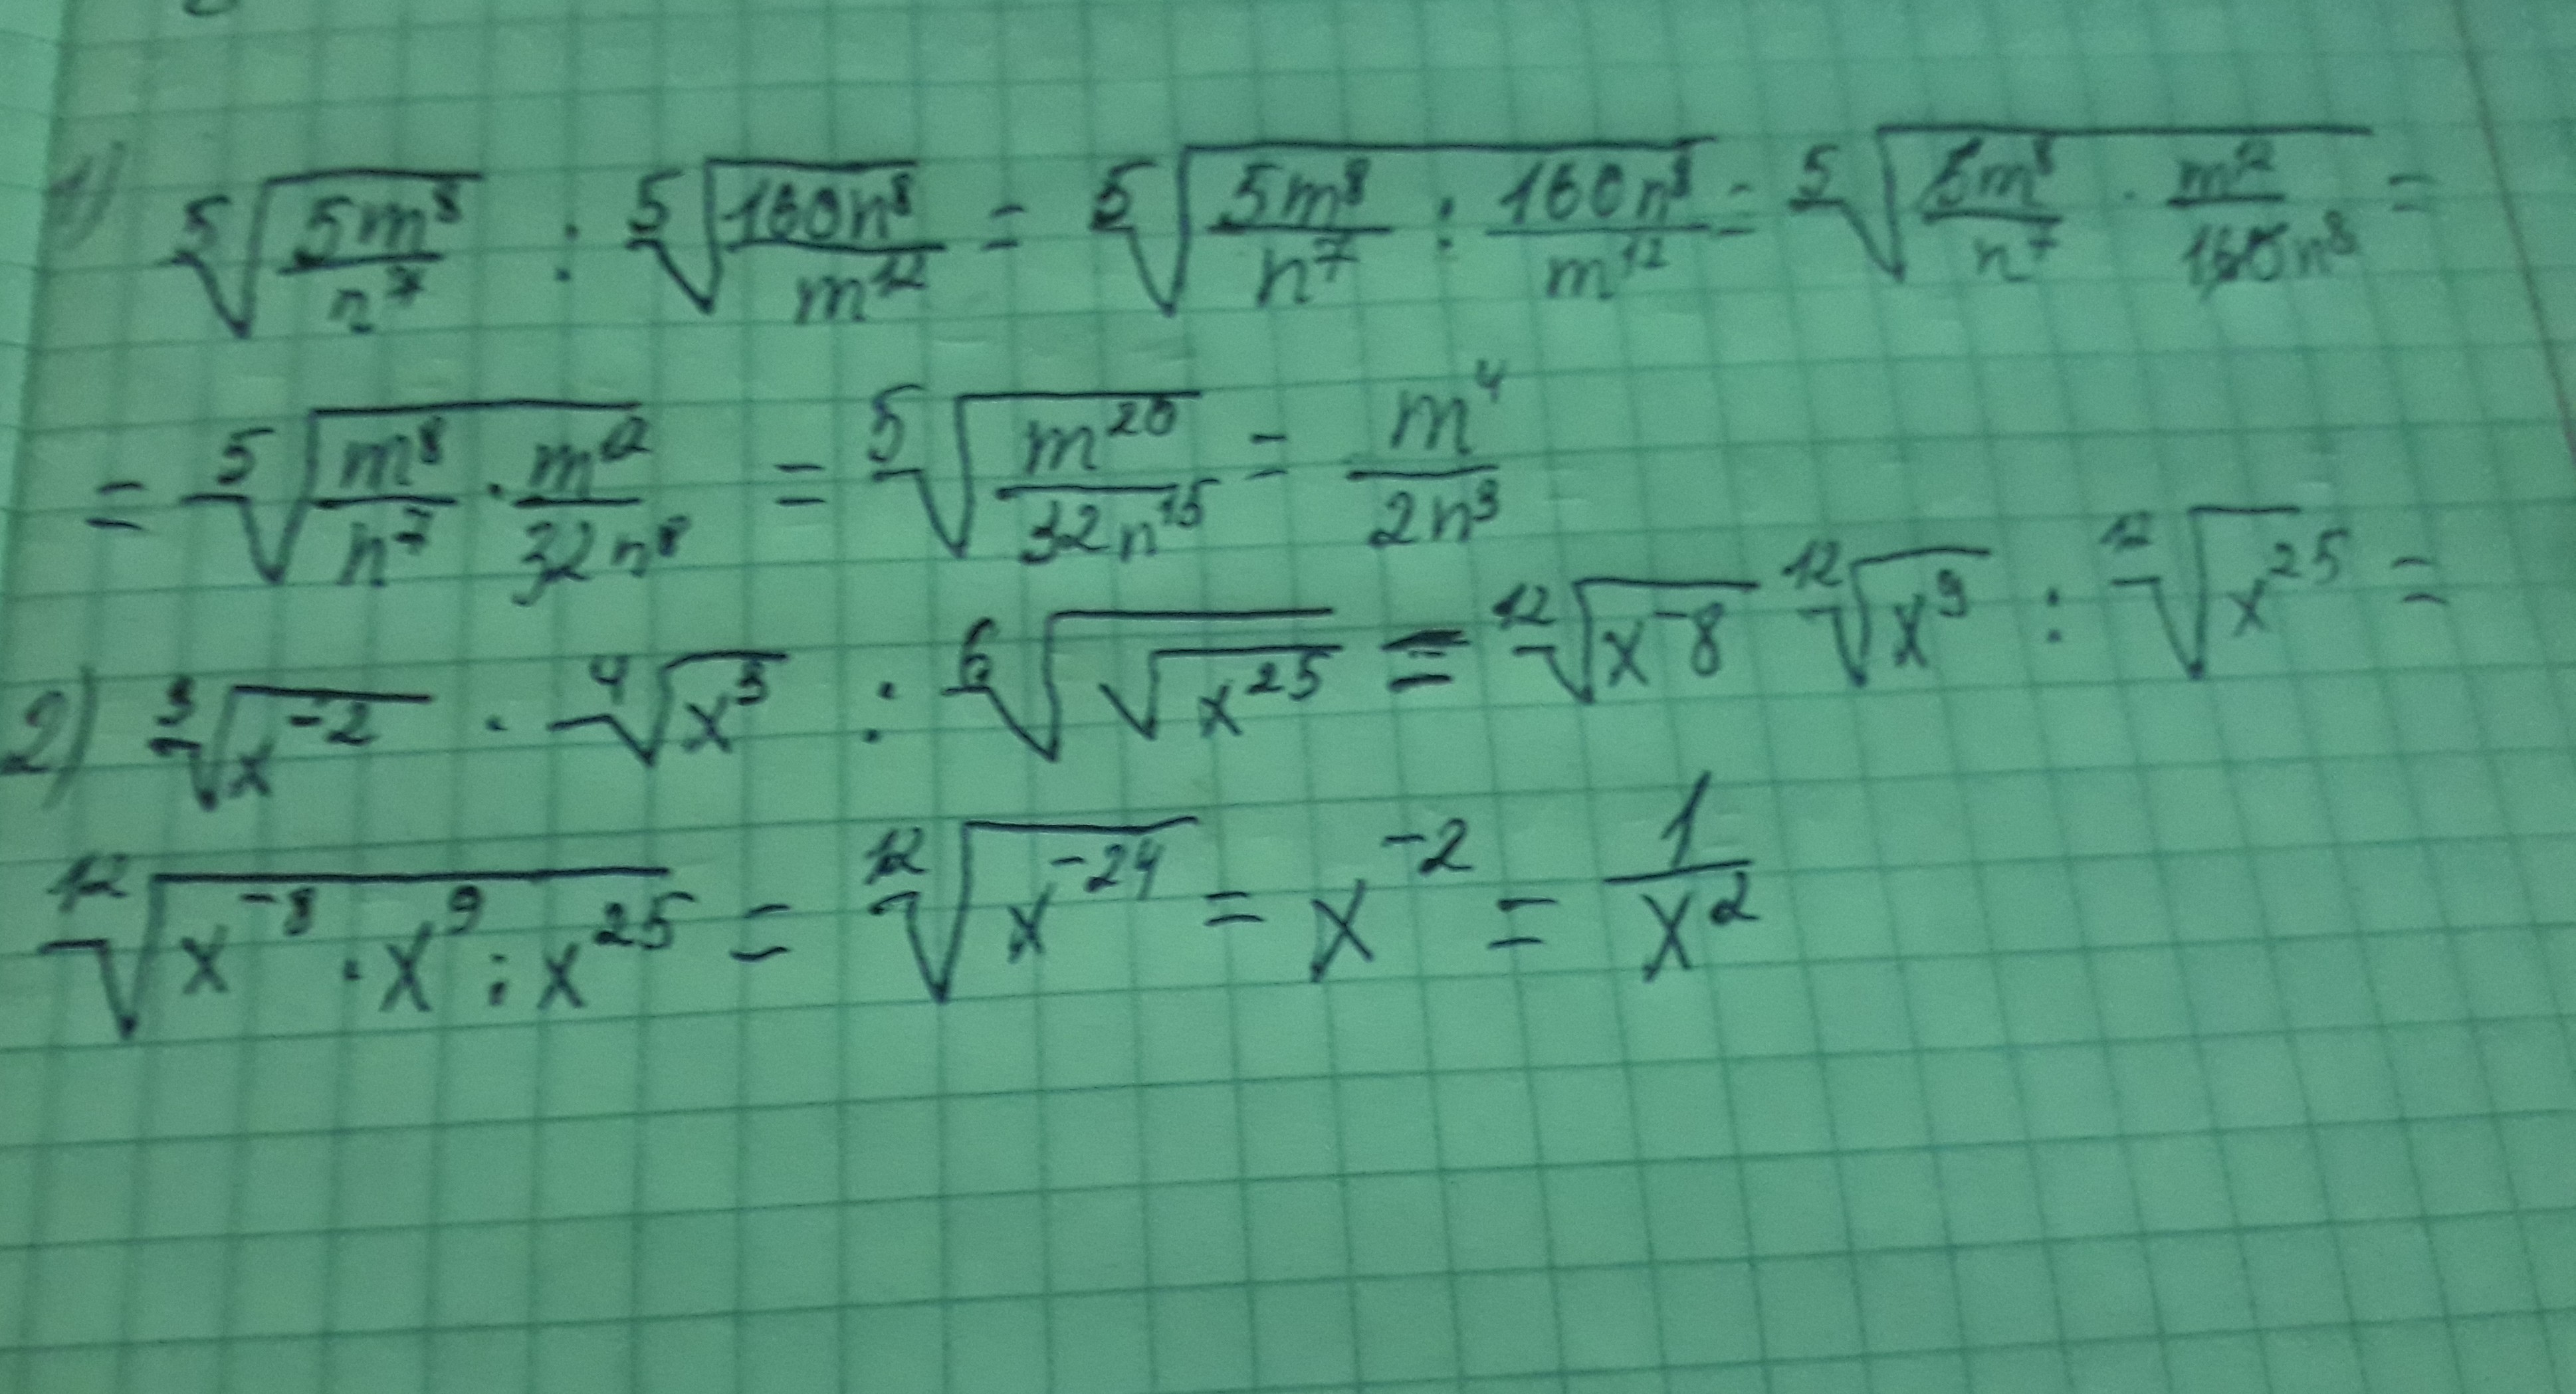 1) ⁵√(5m⁸/n⁷) : ⁵√(160n⁸/m¹²) = ⁵√(5m⁸/n⁷ : 160n⁸/m¹²) = ⁵√(5m⁸/n⁷ · m¹²/160n⁸) =
= ⁵√(m⁸/n⁷ · m¹²/32n⁸) = ⁵√(m²⁰/32n¹⁵) = m⁴/2n³
2) ³√(x⁻²) · ⁴√(x³) : ⁶√(√(x²⁵)) = ¹²√(x⁻⁸) ¹²√(x⁹) : ¹²√(x²⁵) =
¹²√(x⁻⁸ · x⁹ : x²⁵) = ¹²√(x⁻²⁴) = x⁻² = 1/x²